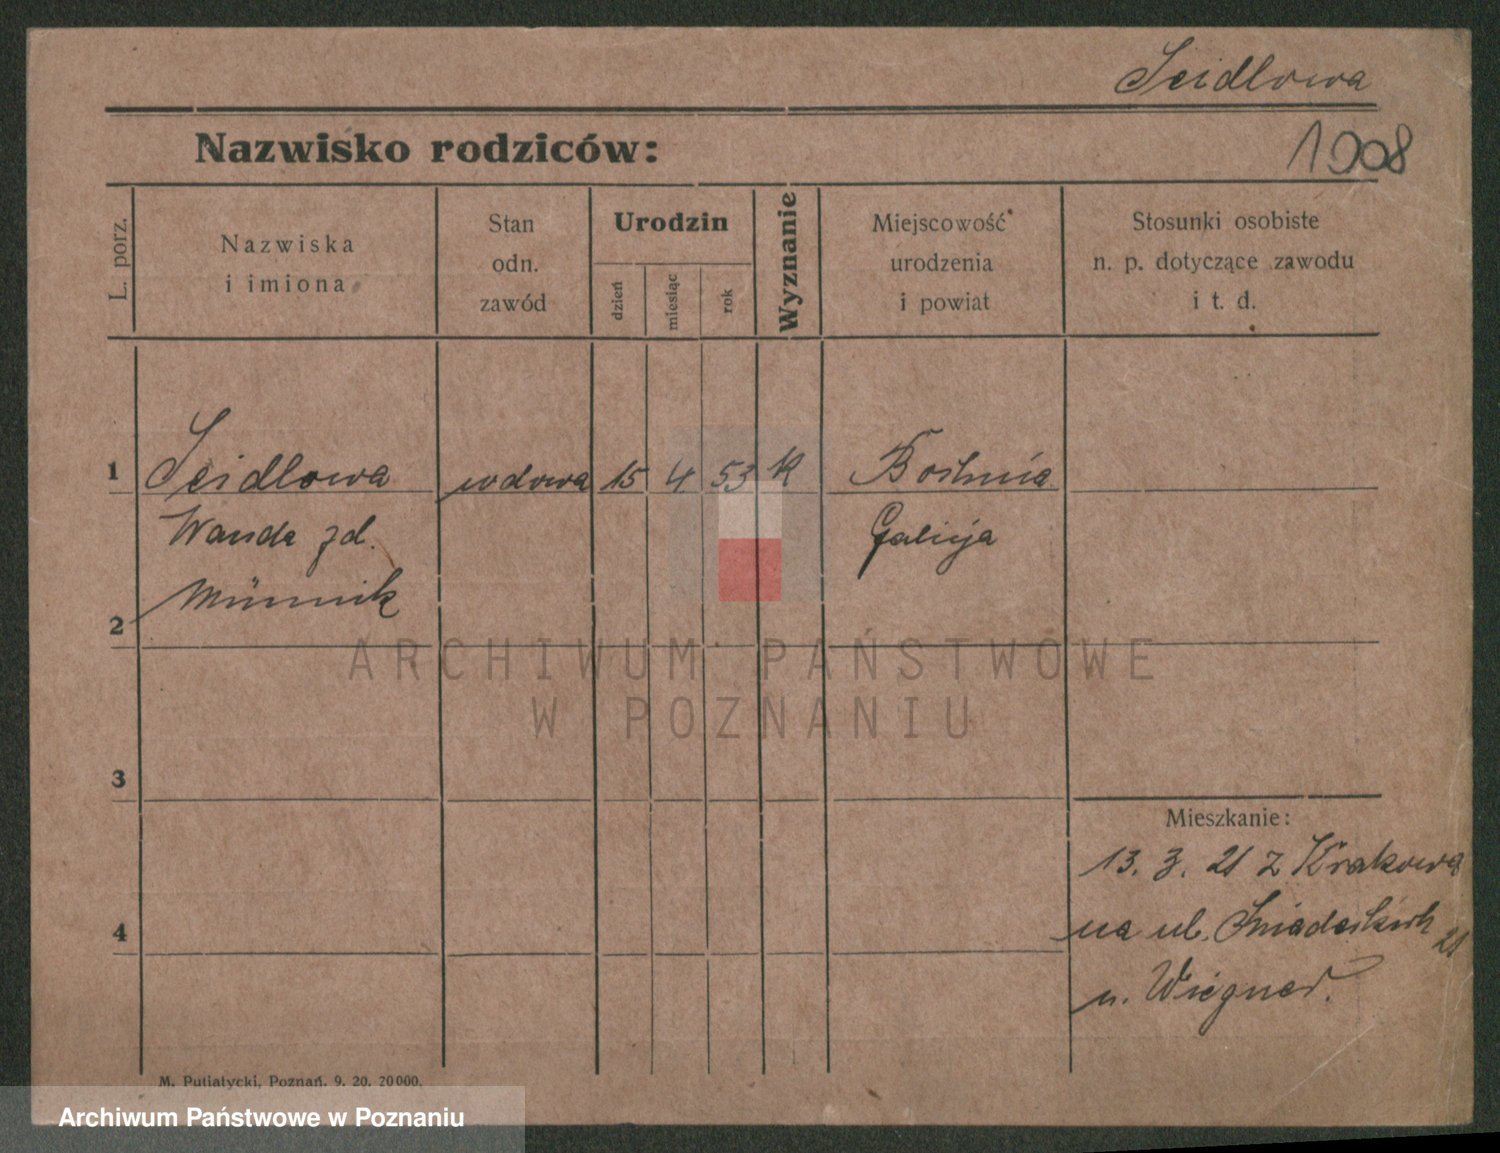 Seidlowa
Nazwisko rodziców:
1908
L. porz.
Nazwiska
i imiona
Stan
odn.
zawód
Urodzin
dzień
miesiąc
rok
Wyznanie
Miejscowość
urodzenia
i powiat
Stosunki osobiste
n. p. dotyczące zawodu
i t. d.
1 Seidlowa wdowa 15 4 53 k Bochnia
Wanda zd. Galicja
2
ARCHIWUM PAŃSTWOWE
W POZNANIU
3
Mieszkanie:
13. 3. 21 z Krakowa
4 na ul. Śniadeckich 21
u. Wiegner.
M. Putiatycki, Poznań. 9. 20. 20000.
Archiwum Państwowe w Poznaniu